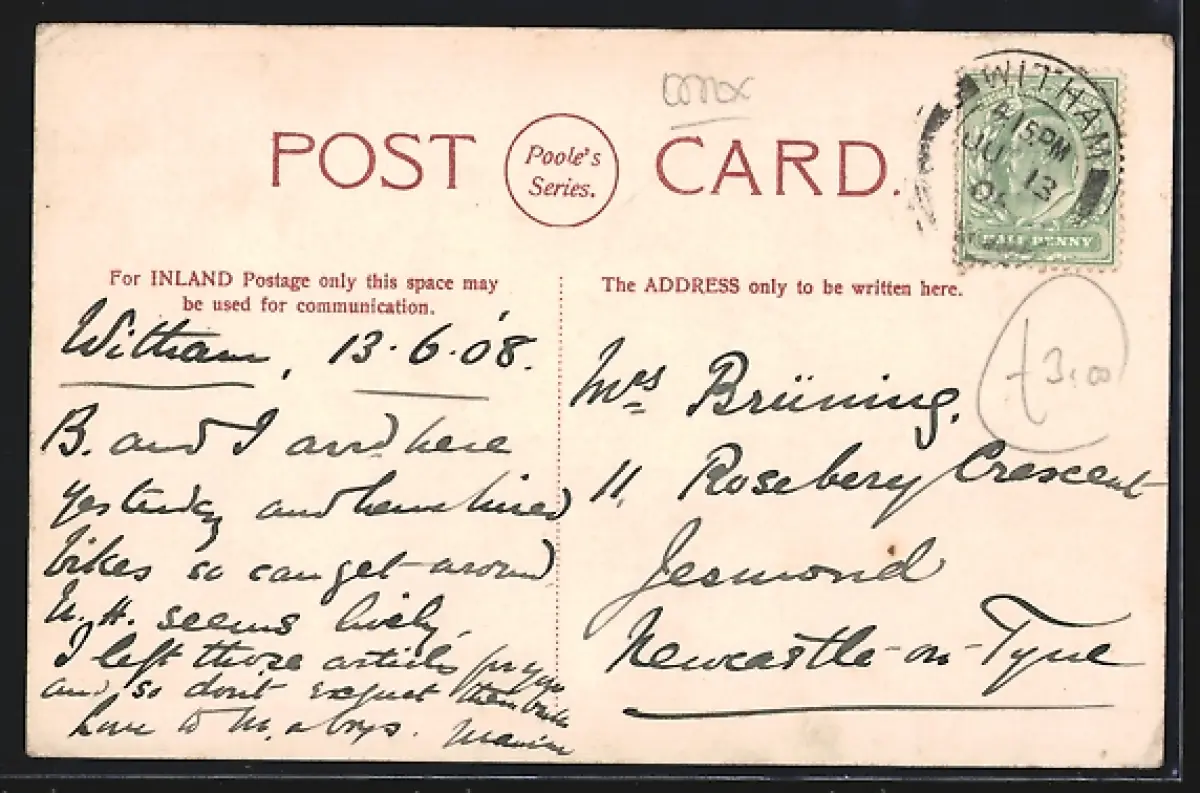 POST CARD.
Poole's
Series.
WITHAM
4 15 PM
JU 13
08
HALF PENNY
For INLAND Postage only this space may
be used for communication.
The ADDRESS only to be written here.
£3.00
Witham, 13.6.08.
B. and I arrd here
yesterday and have hired
bikes so can get around
H. seems lively,
I left those articles for you
and so don't expect them back
Love to M. & boys.
Mrs Brüning,
11 Rosebery Crescent
Jesmond
Newcastle-on-Tyne